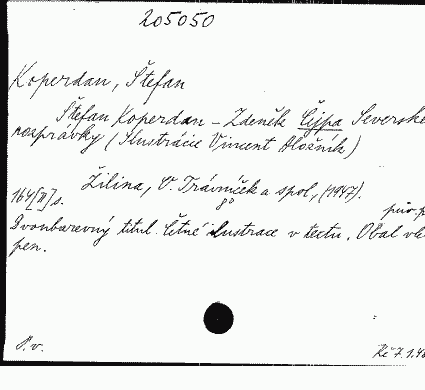 205050
Koperdan, Štefan
Štefan Koperdan - Zdeněk Čejpa Severské
rozprávky (Ilustrácie Vincent Hložník)
Žilina, O. Trávníček a spol, (1947).
8°
164[II]s. pův.p
Dvoubarevný titul. Četné ilustrace v textu. Obal
pen.
P. v. Kč 7.1.48